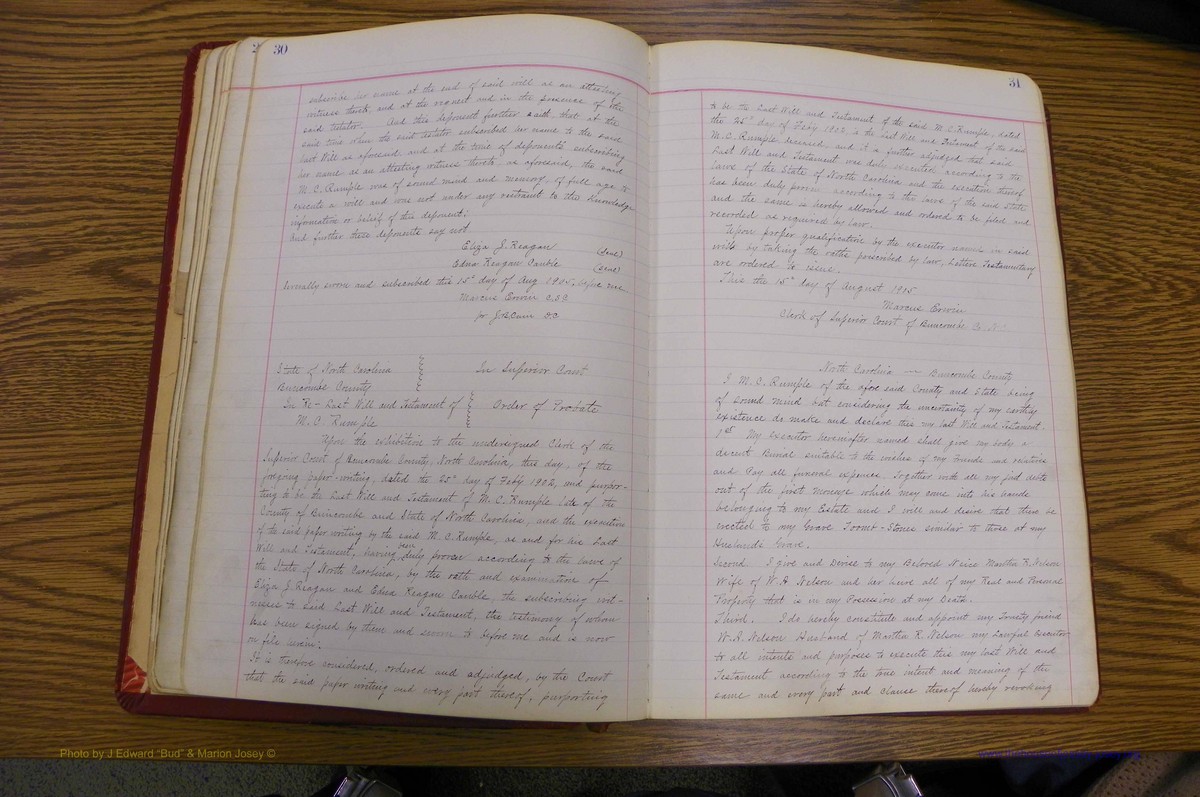 30
subscribe her name at the end of said will as an attesting
witness thereto and at the request and in the presence of the
said testator. And this deponent further saith, that at the
said time when the said testator subscribed her name to the said
last Will as aforesaid and at the time of deponents subscribing
her name as an attesting witness thereto as aforesaid, the said
M. C. Rumple was of sound mind and memory, of full age to
execute a will and was not under any restraint to the knowledge
information or belief of this deponent;
And further these deponents say not
Eliza J. Reagan (seal)
Edna Reagan Cauble (seal)
Severally sworn and subscribed this 15" day of Aug 1905, before me
Marcus Erwin C.S.C.
for J.B. Cain D.C.
State of North Carolina
Buncombe County
In Superior Court
In Re - Last Will and Testament of
M. C. Rumple
Order of Probate
Upon the exhibition to the undersigned Clerk of the
Superior Court of Buncombe County, North Carolina, this day, of the
foregoing paper-writing, dated the 25" day of Feby 1902, and purpor-
ting to be the Last Will and Testament of M. C. Rumple late of the
County of Buncombe and State of North Carolina, and the execution
of the said paper writing by the said M. C. Rumple, as and for his Last
Will and Testament, having been duly proven according to the laws of
the State of North Carolina, by the oath and examination of
Eliza J. Reagan and Edna Reagan Cauble, the subscribing wit-
nesses to said Last Will and Testament, the testimony of whom
has been signed by them and sworn to before me and is now
on file herein;
It is therefore considered, ordered and adjudged, by the Court
that the said paper writing and every part thereof, purporting
31
to be the Last Will and Testament of the said M. C. Rumple, dated
the 25" day of Feby 1902, is the last Will and Testament of the said
M. C. Rumple deceased, and it is further adjudged that said
Last Will and Testament was duly executed according to the
laws of the State of North Carolina and the execution thereof
has been duly proven according to the laws of the said State
and the same is hereby allowed and ordered to be filed and
recorded as required by law.
Upon proper qualification by the executor named in said
will by taking the oaths prescribed by law, Letters Testamentary
are ordered to issue.
This the 15" day of August 1915
Marcus Erwin
Clerk of Superior Court of Buncombe Co. N.C.
North Carolina — Buncombe County
I M. C. Rumple of the afore said County and State being
of sound mind but considering the uncertainty of my earthly
existence do make and declare this my last Will and Testament.
1st My Executor hereinafter named shall give my body a
decent Burial suitable to the wishes of my Friends and relatives
and Pay all funeral expenses, Together with all my just debts
out of the first moneys which may come into his hands
belonging to my Estate and I will and desire that there be
erected to my Grave Toomb-Stones similar to those at my
Husbands Grave.
Second I give and Devise to my Beloved Neice Martha R. Nelson
Wife of W. A Nelson and her heirs all of my Real and Personal
Property that is in my Possession at my Death.
Third. I do hereby constitute and appoint my Trusty friend
W. A. Nelson Husband of Martha R. Nelson my Lawful Executor
to all intents and purposes to execute this my last Will and
Testament according to the true intent and meaning of the
same and every part and clause thereof hereby revoking
Photo by J Edward "Bud" & Marion Josey ©